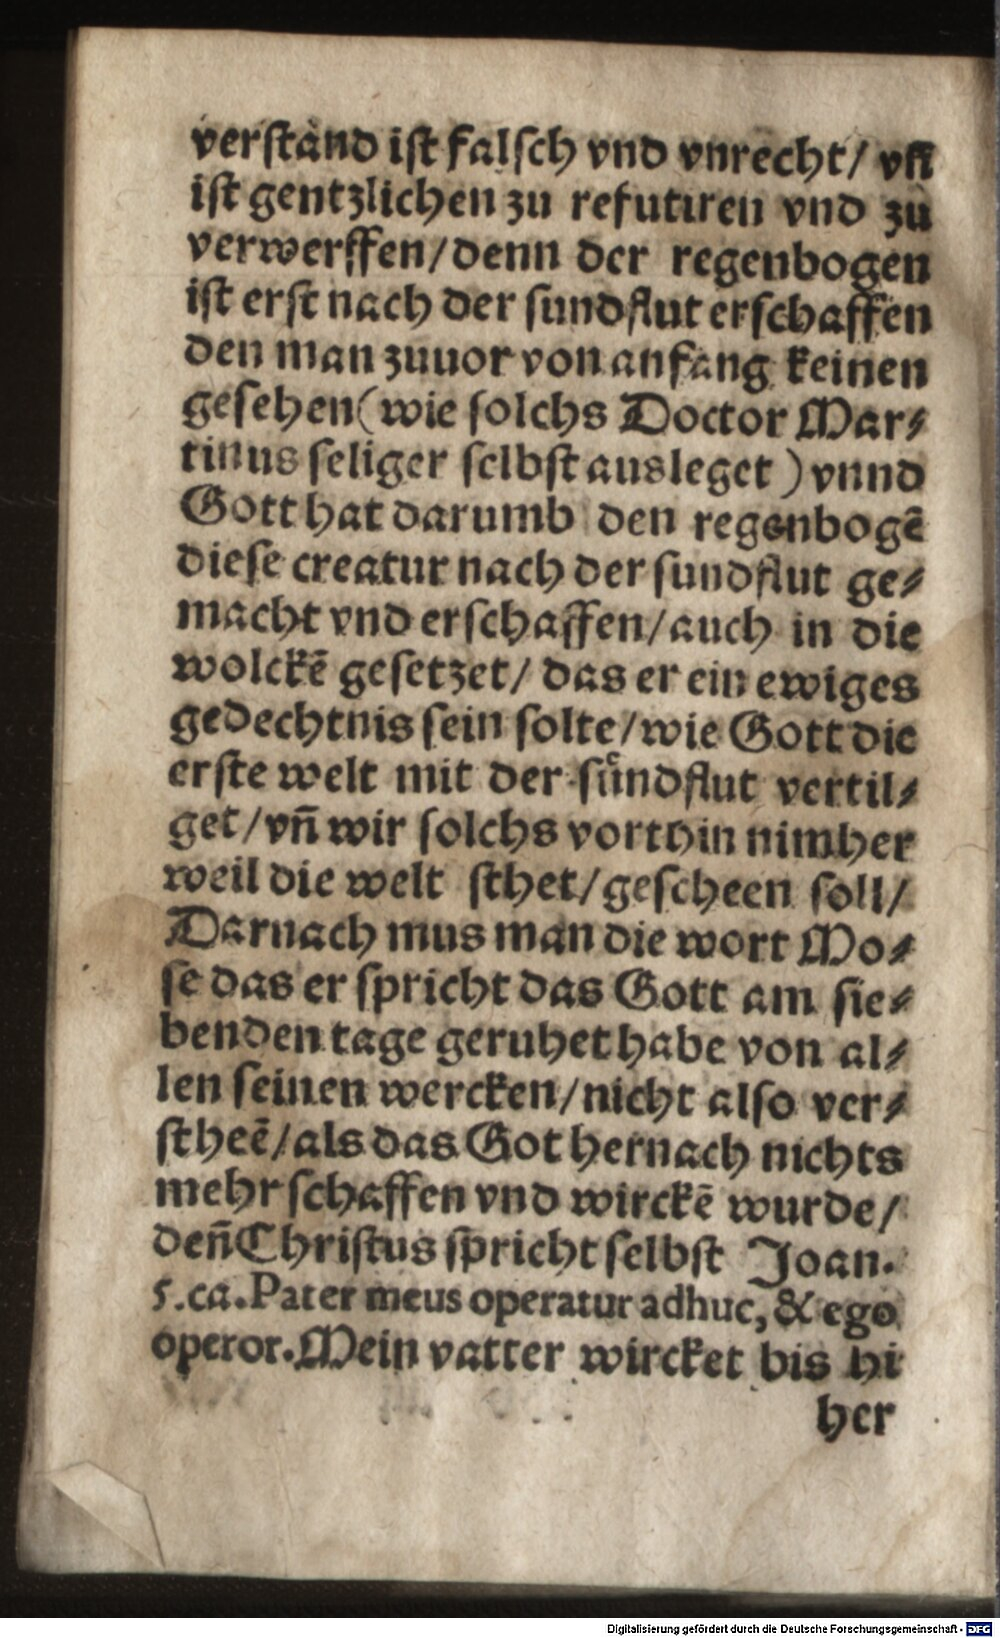 verstand ist falsch vnd vnrecht/ vñ
ist gentzlichen zu refutiren vnd zu
verwerffen/denn der regenbogen
ist erst nach der sundflut erschaffen
den man zuuor von anfang keinen
gesehen(wie solchs Doctor Mar⸗
tinus seliger selbst ausleget) vnnd
Gott hat darumb den regenbogē
diese creatur nach der sundflut ge⸗
macht vnd erschaffen/auch in die
wolckē gesetzet/ das er ein ewiges
gedechtnis sein solte/wie Gott die
erste welt mit der suͤndflut vertil⸗
get/vñ wir solchs vorthin nimher
weil die welt sthet/gescheen soll/
Darnach mus man die wort Mo⸗
se das er spricht das Gott am sie⸗
benden tage geruhet habe von al⸗
len seinen wercken/nicht also ver⸗
stheē/als das Got hernach nichts
mehr schaffen vnd wirckē wurde/
deñ Christus spricht selbst Joan.
5.ca.Pater meus operatur adhuc, & ego
operor.Mein vatter wircket bis hi
her
Digitalisierung gefördert durch die Deutsche Forschungsgemeinschaft - DFG